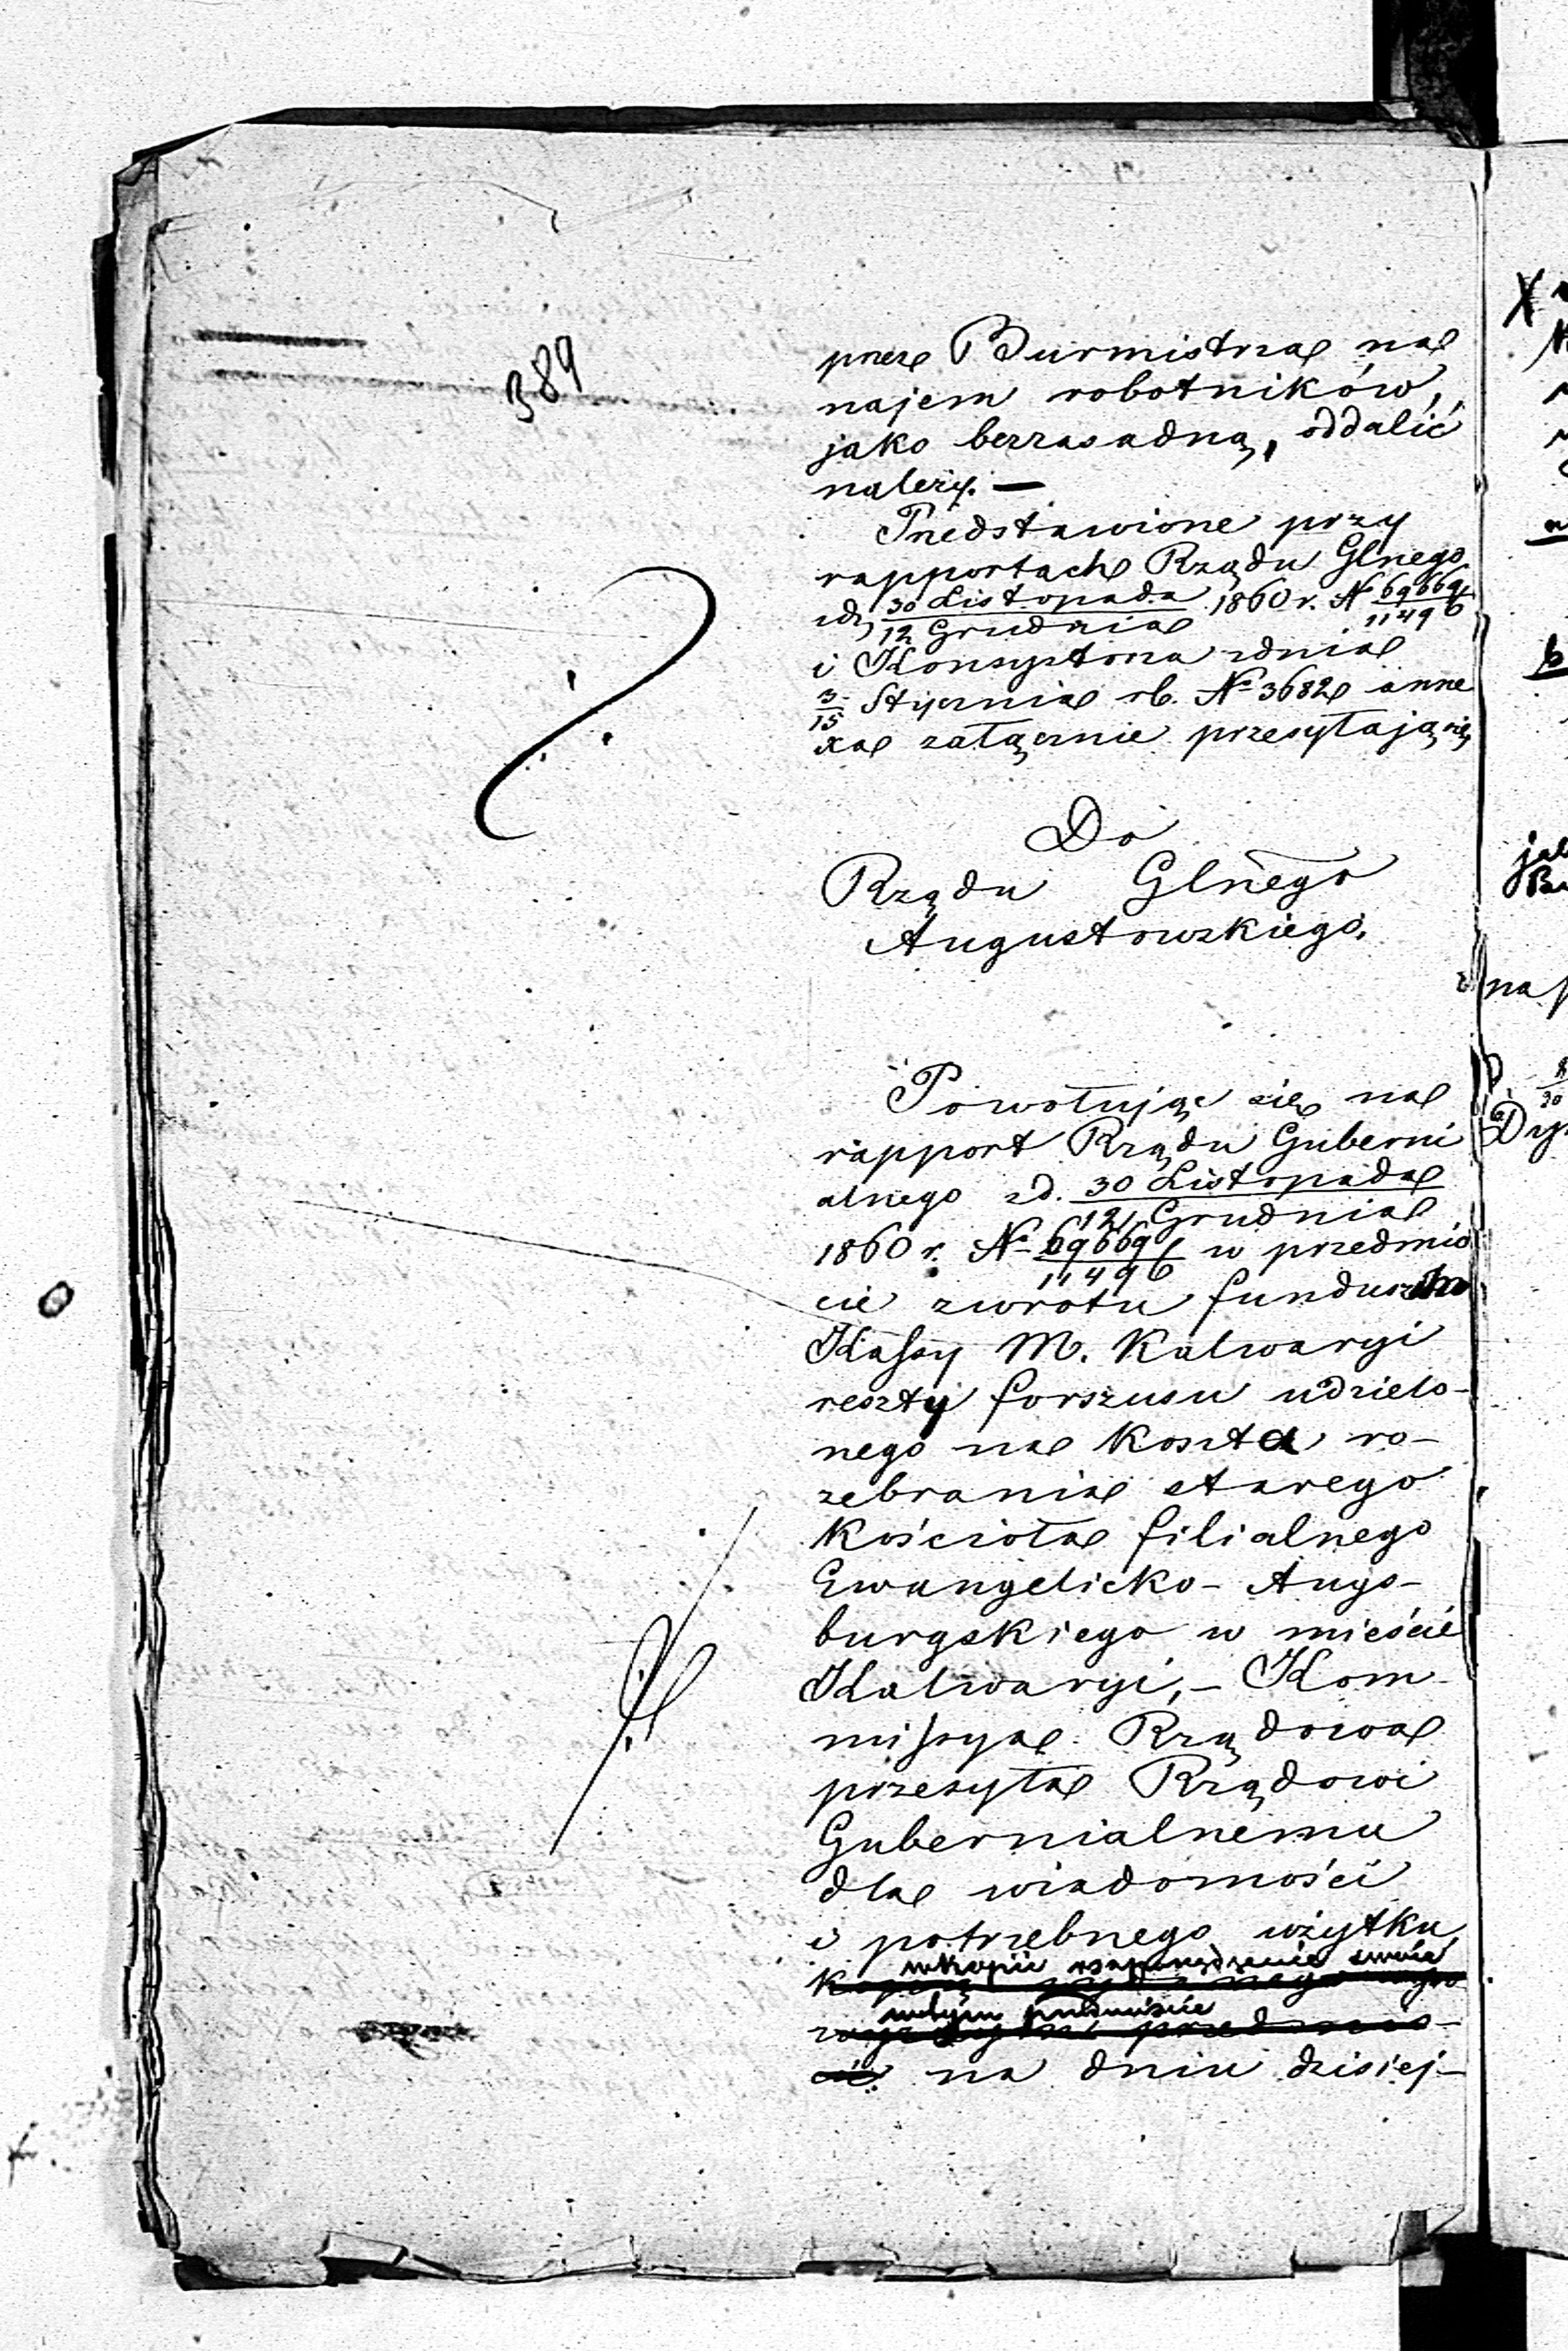 389
przez Burmistrza na
najem robotników,
jako bezzasadną, oddalić
należy. —
Przedstawione przy
rapportach Rządu Glnego
zd. 30 Listopada / 12 Grudnia 1860 r. № 69669/11496
i Konsystorza zdnia
3/15 Stycznia rb. № 3682 anne
xa załącznie przesyłają się
Do
Rządu Glnego
Augustowskiego.
Powołując się na
rapport Rządu Guberni
alnego zd. 30 Listopada / 12 Grudnia
1860 r. № 69669/11496 w przedmio
cie zwrotu funduszom
Kassy M. Kalwaryi
reszty forszusu udzielo-
nego na koszta ro-
zebrania starego
Kościoła filialnego
Ewangelicko-Augs-
burgskiego w mieście
Kalwaryi, – Kom
missya Rządowa
przesyła Rządowi
Gubernialnemu
dla wiadomości
i potrzebnego użytku
w kopii rozporządzenie swoie
w tym przedmiocie
na dniu dzisiej-